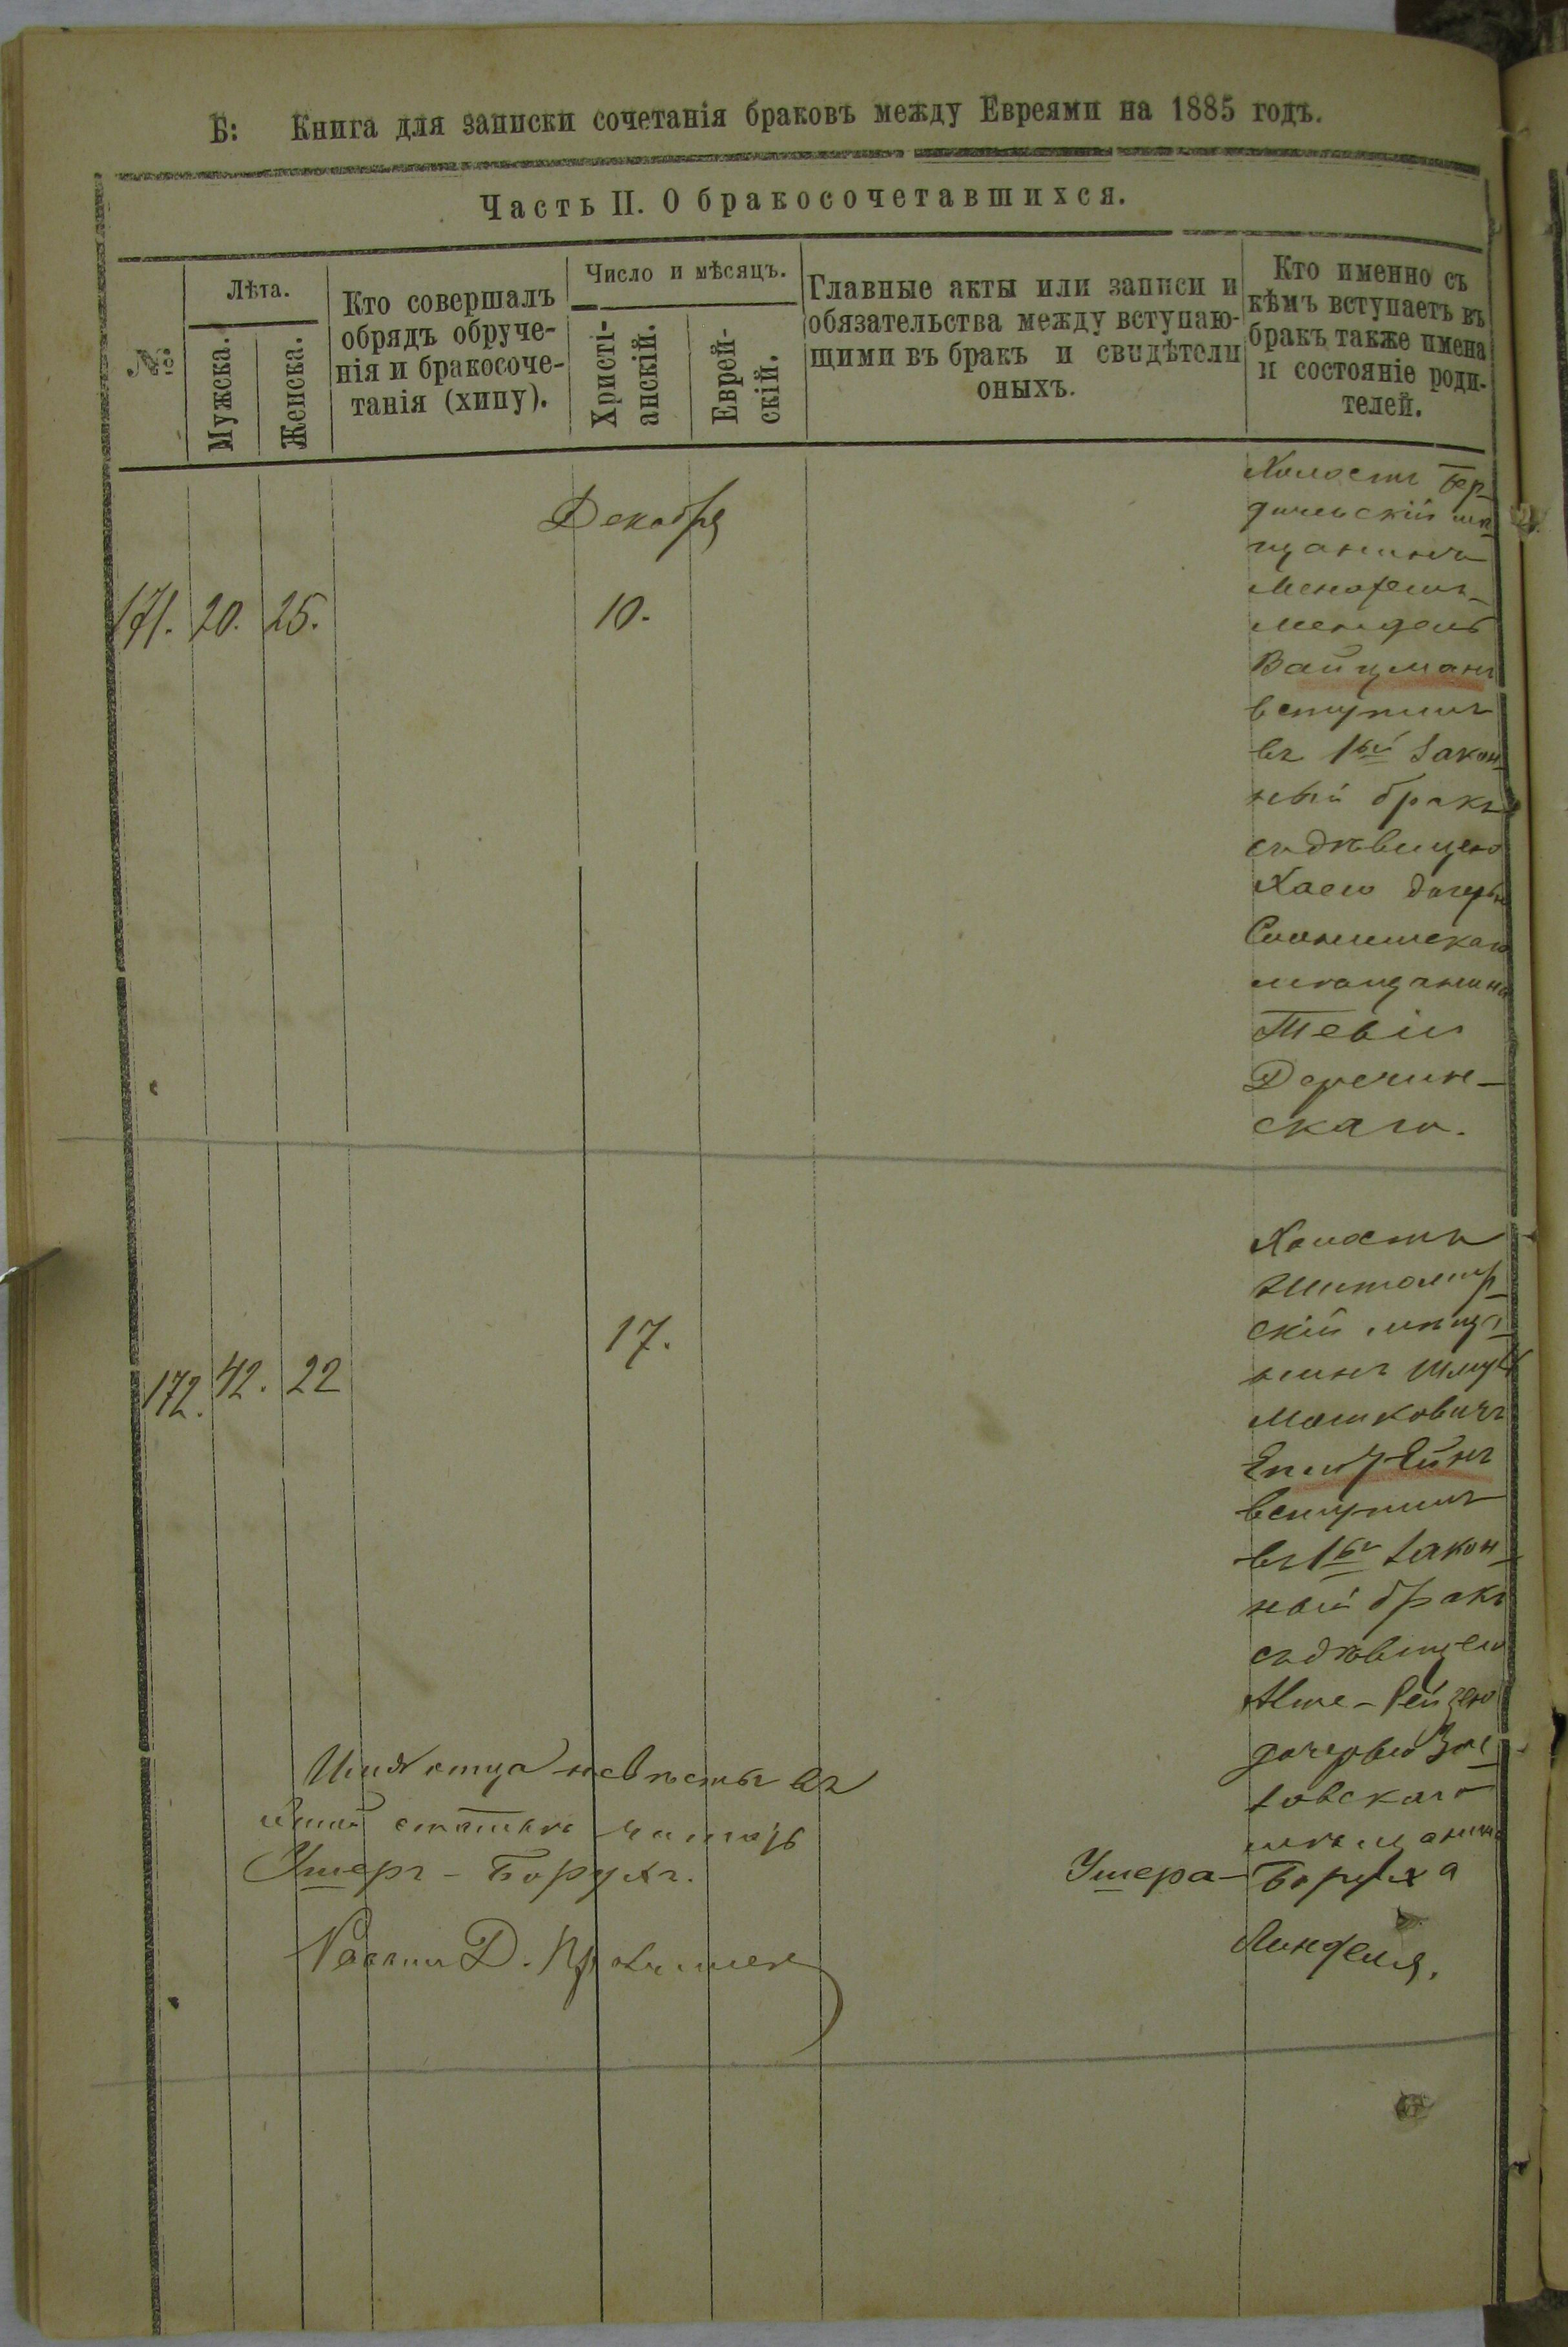 Б: Книга для записки сочетанія браковъ между Евреями на 1885 годъ.
Часть II. О бракосочетавшихся.
№
Лѣта.
Мужска.
Женска.
Кто совершалъ
обрядъ обруче-
нія и бракосоче-
танія (хипу).
Число и мѣсяцъ.
Христі-
анскій.
Еврей-
скій.
Главные акты или записи и
обязательства между вступаю-
щими въ бракъ и свидѣтели
оныхъ.
Кто именно съ
кѣмъ вступаетъ въ
бракъ также имена
и состояніе роди-
телей.
Декабря
171. 20. 25. 10.
Холостъ Бер-
дичевскій мѣ-
щанинъ
Мендель
Вайцманъ
вступилъ
въ 1ый закон-
ный бракъ
съ дѣвицею
Хаею дочерью
мѣщанина
Тевіи
Деречин-
скаго.
172. 42. 22 17.
Холостъ
Житомір-
скій мѣща-
нинъ Шмуль
Мошковичъ
Епштейнъ
вступилъ
въ 1ый закон-
ный бракъ
съ дѣвицею
Рейзею
дочерью
мѣщанина
Ушера-Боруха
Имя отца невѣсты въ
этой статьѣ читать
Ушеръ-Борухъ.